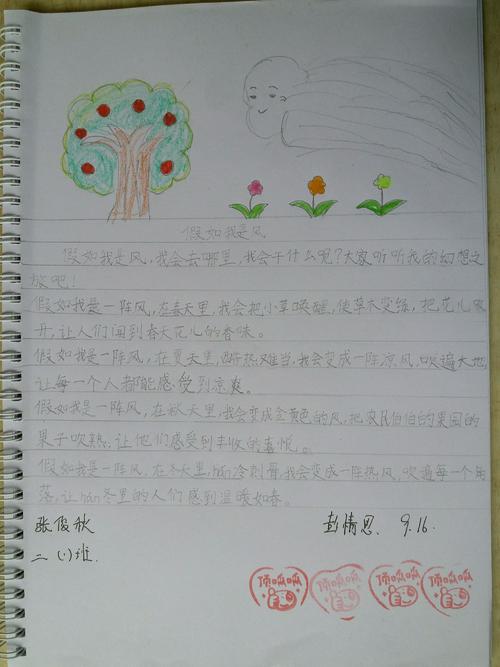 假如我是风
假如我是风,我会去哪里,我会干什么呢?大家听听我的幻想之
旅吧!
假如我是一阵风,在春天里,我会把小草唤醒,使草木变绿,把花儿吹
开,让人们闻到春天花儿的香味。
假如我是一阵风,在夏天里,酷热难当,我会变成一阵凉风,吹遍大地,
让每一个人都能感受到凉爽。
假如我是一阵风,在秋天里,我会变成金黄色的风,把农民伯伯的果园的
果子吹熟,让他们感受到丰收的喜悦。
假如我是一阵风,在冬天里,hán冷刺骨,我会变成一阵热风,吹遍每一个角
落,让hán冬里的人们感到温暖如春。
张俊秋 彭情思 9.16.
二(1)班.
顶呱呱 顶呱呱 顶呱呱 顶呱呱